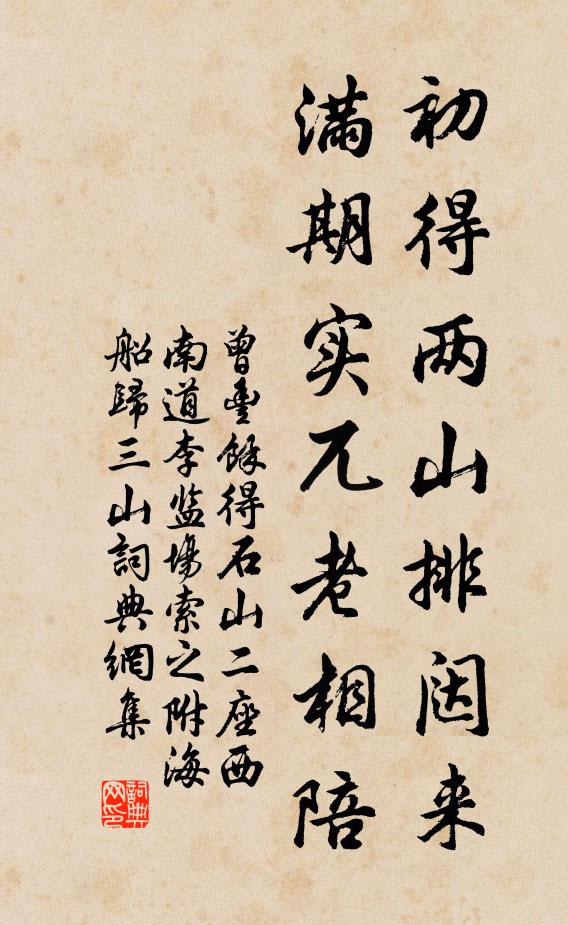 初得两山排闼来
满期实兀老相陪
曾豐餘得石山二座西
南道李监場索之附海
船歸三山詞典網集
詞典网印